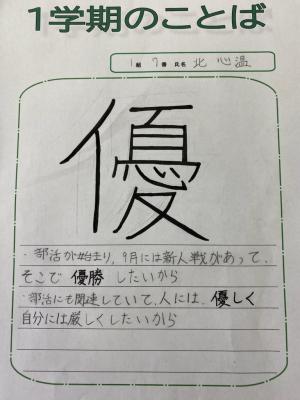 1学期のことば
1組 7番 氏名 北 心温
優
・部活が始まり、9月には新人戦があって、
そこで 優勝 したいから
・部活にも関連していて、人には、優しく
自分には厳しくしたいから